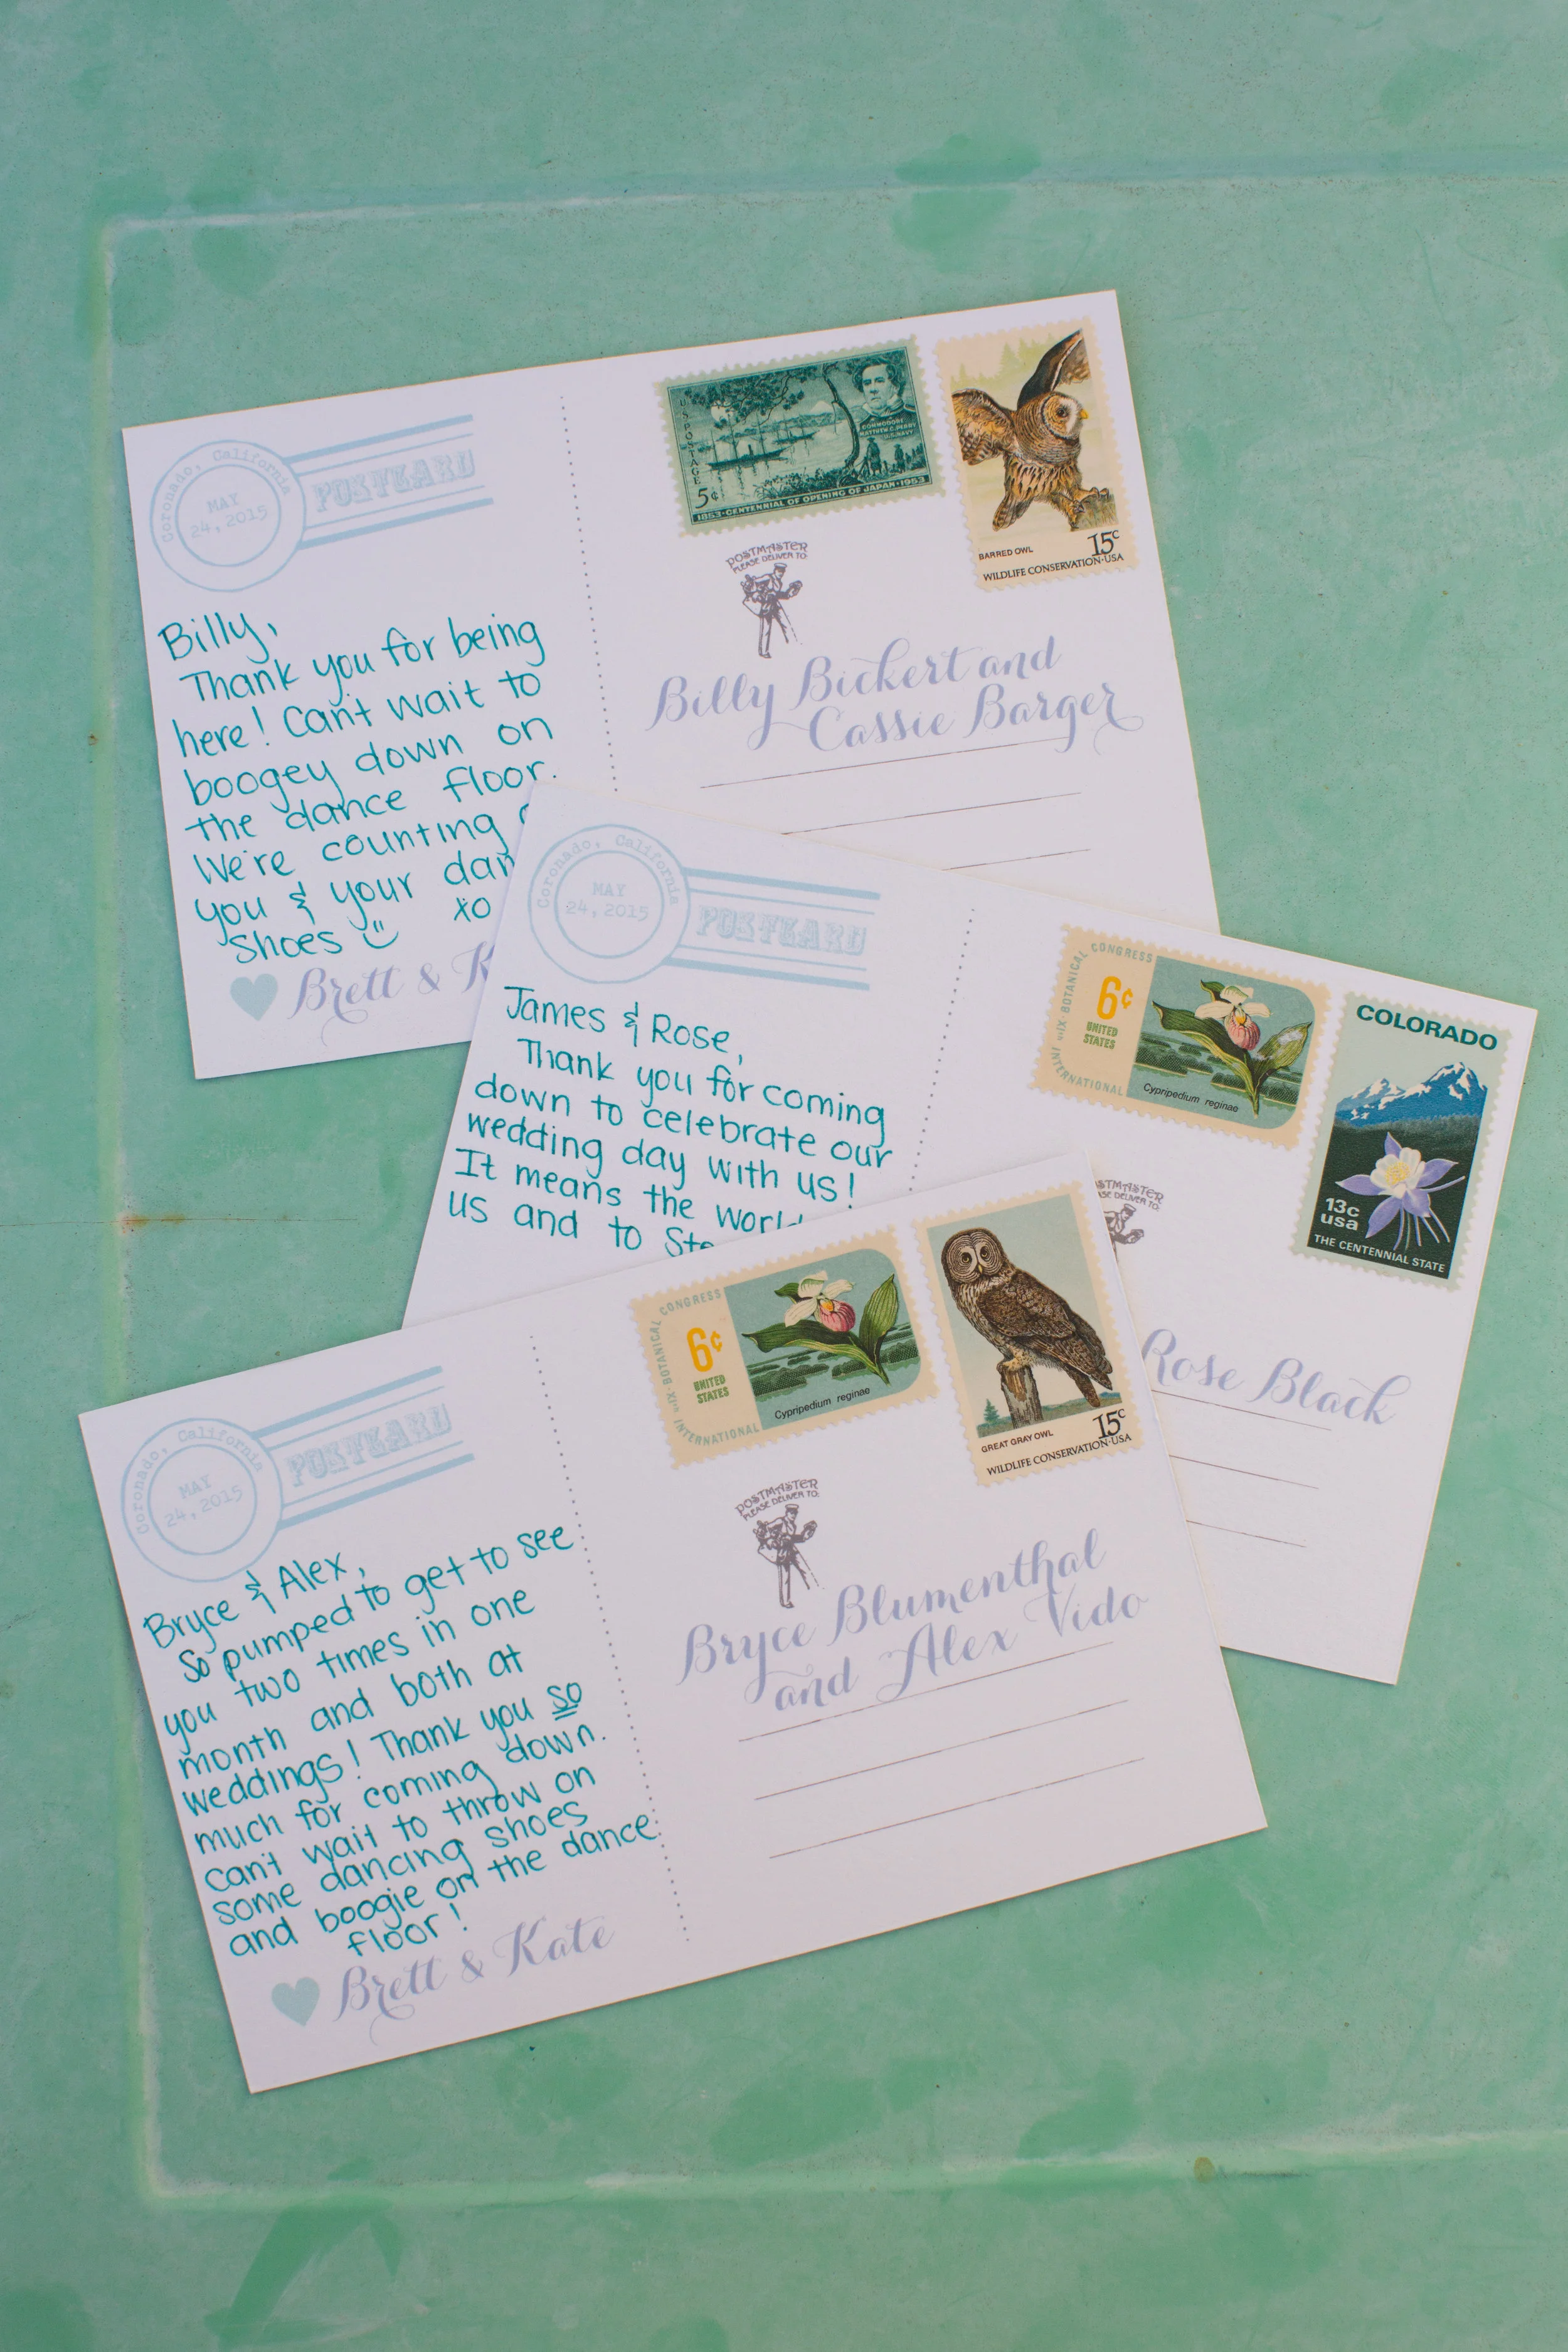 Coronado, California
MAY
24, 2015
POSTCARD
U.S. POSTAGE
5¢
COMMODORE
MATTHEW C. PERRY
U.S. NAVY
1853·CENTENNIAL OF OPENING OF JAPAN·1953
BARRED OWL
15c
WILDLIFE CONSERVATION·USA
POSTMASTER
PLEASE DELIVER TO:
Billy,
Thank you for being
here! Can't wait to
boogey down on
the dance floor.
We're counting
you & your dan
shoes xo
Brett & K
Billy Bickert and
Cassie Barger
Coronado, California
MAY
24, 2015
POSTCARD
INT'L·XI·BOTANICAL CONGRESS
INTERNATIONAL
6¢
UNITED
STATES
Cypripedium reginae
COLORADO
13c
usa
THE CENTENNIAL STATE
STMASTER
SE DELIVER TO:
James & Rose,
Thank you for coming
down to celebrate our
wedding day with us!
It means the world
us and to Ste
Rose Black
Coronado, California
MAY
24, 2015
POSTCARD
XI·BOTANICAL CONGRESS
INTERNATIONAL
6¢
UNITED
STATES
Cypripedium reginae
GREAT GRAY OWL
15c
WILDLIFE CONSERVATION·USA
POSTMASTER
PLEASE DELIVER TO:
Bryce & Alex,
So pumped to get to see
you two times in one
month and both at
weddings! Thank you so
much for coming down.
can't wait to throw on
some dancing shoes
and boogie on the dance
floor!
Brett & Kate
Bryce Blumenthal
and Alex Vido